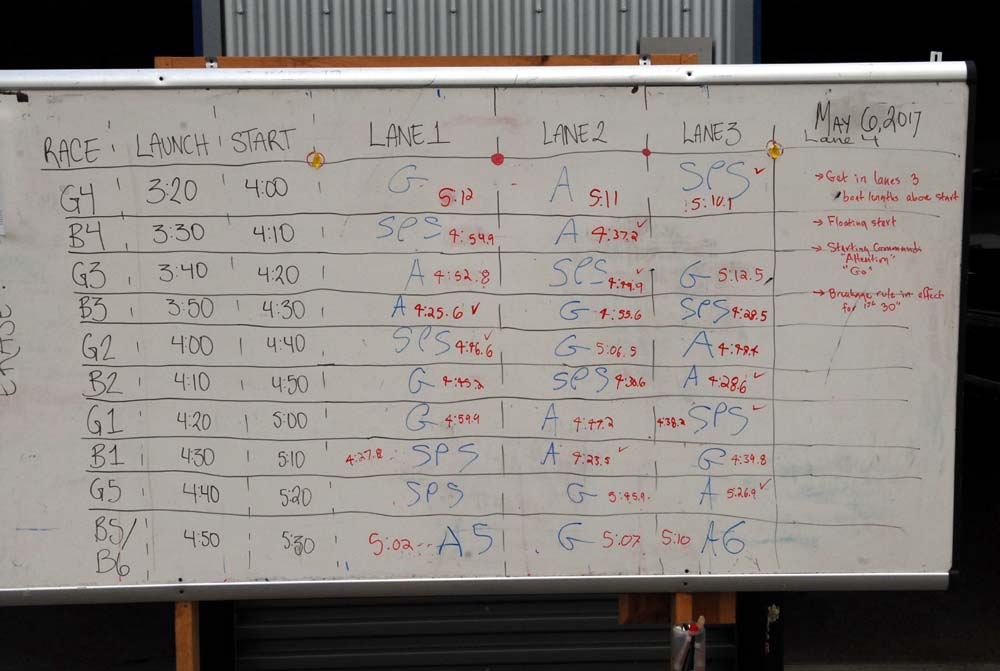 MAY 6, 2017
RACE LAUNCH START LANE 1 LANE 2 LANE 3 Lane 4
G4 3:20 4:00 G 5:12 A 5:11 SPS ✓ 5:10.1
B4 3:30 4:10 SPS 4:54.9 A 4:37.2 ✓
G3 3:40 4:20 A 4:52.8 SPS 4:49.9 ✓ G 5:12.5
B3 3:50 4:30 A 4:25.6 ✓ G 4:55.6 SPS 4:28.5
G2 4:00 4:40 SPS 4:46.6 ✓ G 5:06.5 A 4:48.4
B2 4:10 4:50 G 4:45.2 SPS 4:30.6 A 4:28.6 ✓
G1 4:20 5:00 G 4:59.9 A 4:47.2 4:38.2 SPS ✓
B1 4:30 5:10 4:27.8 SPS A 4:23.5 ✓ G 4:39.8
G5 4:40 5:20 SPS G 5:45.9 A 5:26.9 ✓
B5/ B6 4:50 5:30 5:02 A5 G 5:07 5:10 A6
→ Get in lanes 3
boat lengths above start
→ Floating start
→ Starting Commands
"Attention"
"Go"
→ Breakage rule in effect
for 1st 30"